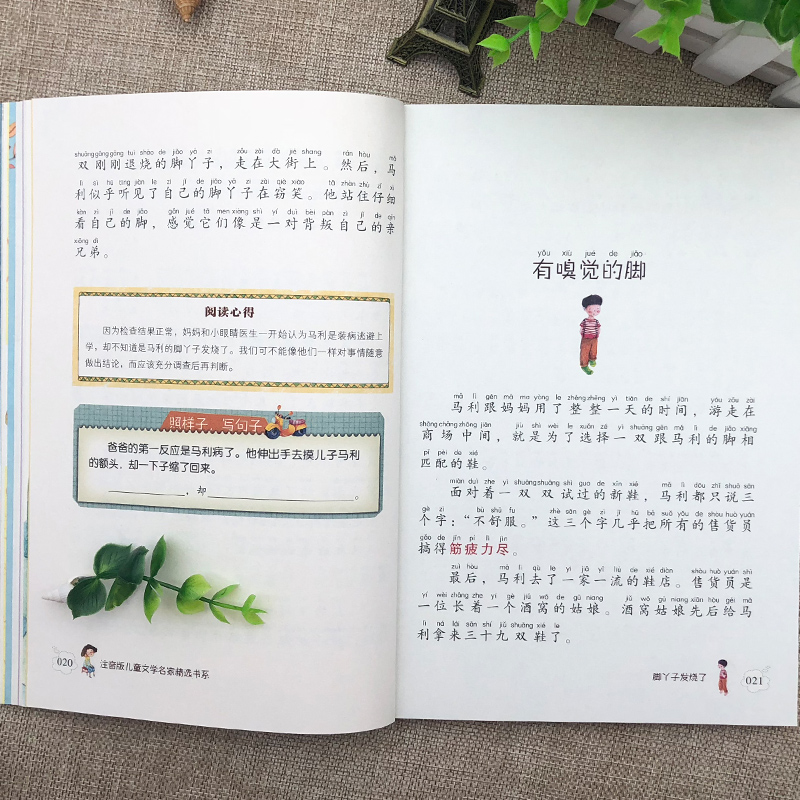 shuāng gāng gāng tuì shāo de jiǎo yā zi zǒu zài dà jiē shang rán hòu mǎ
双刚刚退烧的脚丫子，走在大街上。然后，马
lì sì hū tīng jiàn le zì jǐ de jiǎo yā zi zài qiè xiào tā zhàn zhù zǐ xì
利似乎听见了自己的脚丫子在窃笑。他站住仔细
kàn zì jǐ de jiǎo gǎn jué tā men xiàng shì yí duì bèi pàn zì jǐ de qīn
看自己的脚，感觉它们像是一对背叛自己的亲
xiōng dì
兄弟。
阅读心得
因为检查结果正常，妈妈和小眼睛医生一开始认为马利是装病逃避上
学，却不知道是马利的脚丫子发烧了。我们可不能像他们一样对事情随意
做出结论，而应该充分调查后再判断。
照样子，写句子
爸爸的第一反应是马利病了。他伸出手去摸儿子马利
的额头，却一下子缩了回来。
____________，却____________________。
020
注音版儿童文学名家精选书系
yǒu xiù jué de jiǎo
有嗅觉的脚
mǎ lì gēn mā ma yòng le zhěng zhěng yì tiān de shí jiān yóu zǒu zài
马利跟妈妈用了整整一天的时间，游走在
shāng chǎng zhōng jiān jiù shì wèi le xuǎn zé yì shuāng gēn mǎ lì de jiǎo xiāng
商场中间，就是为了选择一双跟马利的脚相
pǐ pèi de xié
匹配的鞋。
miàn duì zhe yì shuāng shuāng shì guo de xīn xié mǎ lì dōu zhǐ shuō sān
面对着一双双试过的新鞋，马利都只说三
gè zì bù shū fu zhè sān gè zì jī hū bǎ suǒ yǒu de shòu huò yuán
个字：“不舒服。”这三个字几乎把所有的售货员
gǎo de jīn pí lì jìn
搞得筋疲力尽。
zuì hòu mǎ lì qù le yì jiā yī liú de xié diàn shòu huò yuán shì
最后，马利去了一家一流的鞋店。售货员是
yí wèi zhǎng zhe yí gè jiǔ wō de gū niang jiǔ wō gū niang xiān hòu gěi mǎ
一位长着一个酒窝的姑娘。酒窝姑娘先后给马
lì ná lái sān shí jiǔ shuāng xié le
利拿来三十九双鞋了。
脚丫子发烧了
021